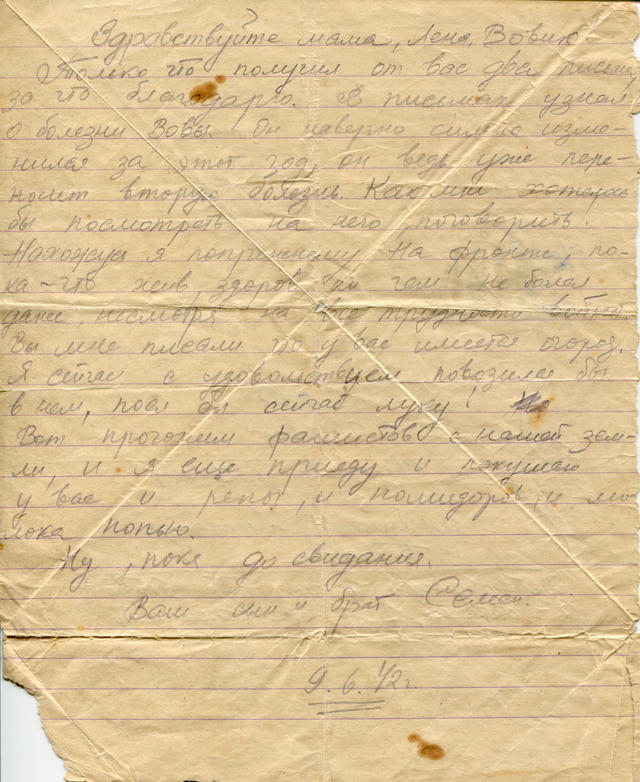 Здравствуйте мама, Лена, Вовик!
Только что получил от вас два письма
за что благодарю. В письмах узнал
о болезни Вовы. Он наверно сильно изме-
нился за этот год, он ведь уже пере-
носит вторую болезнь. Как мне хотелось
бы посмотреть на него, поговорить.
Нахожусь я попрежнему на фронте, по-
ка-что жив, здоров, ни чем не болел
даже, несмотря на все трудности войны.
Вы мне писали что у вас имеется огород.
Я сейчас с удовольствием повозился бы
в нем, поел бы сейчас луку!
Вот прогоним фашистов с нашей зем-
ли, и я еще приеду и покушаю
у вас и репы, и помидоров, и мо-
лока попью.
Ну, пока до свидания.
Ваш сын и брат Семен.
9.6.42г.